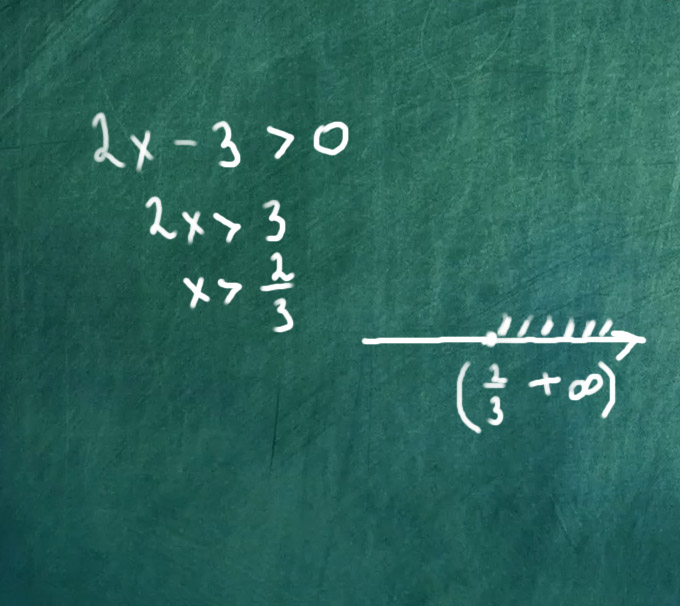 2x - 3 > 0
2x > 3
x > 2/3
(2/3 +∞)